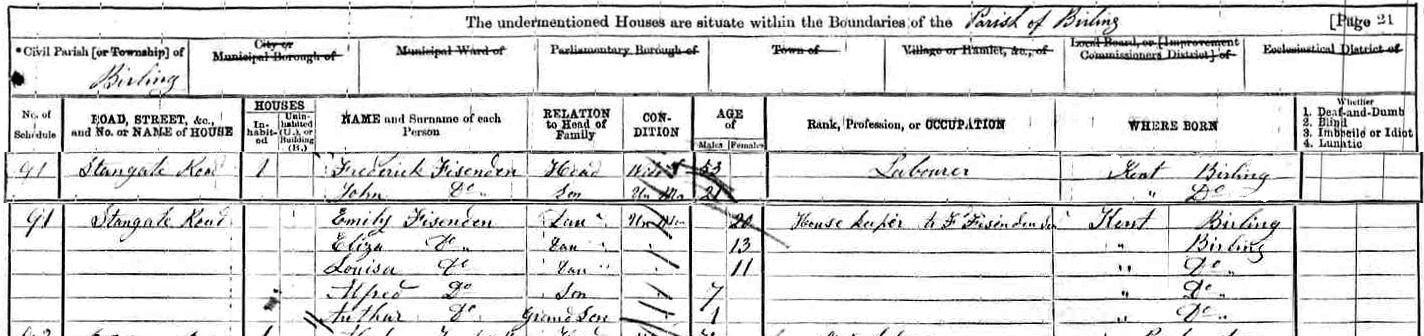 The undermentioned Houses are situate within the Boundaries of the Parish of Birling [Page 21
*Civil Parish [or Township] of Birling
City or Municipal Borough of
Municipal Ward of
Parliamentary Borough of
Town of
Village or Hamlet, &c., of
Local Board, or [Improvement Commissioners District] of
Ecclesiastical District of
No. of Schedule
ROAD, STREET, &c., and No. or NAME of HOUSE
HOUSES
In-habit-ed
Unin-habited (U.), or Building (B.)
NAME and Surname of each Person
RELATION to Head of Family
CON-DITION
AGE of
Males Females
Rank, Profession, or OCCUPATION
WHERE BORN
Whether
1. Deaf-and-Dumb
2. Blind
3. Imbecile or Idiot
4. Lunatic
91 Stangate Road 1 Frederick Fisenden Head Widr 53 Labourer Kent Birling
John Do Son Un Mar 21 " Do
91 Stangate Road Emily Fisenden Dau Un Mar 20 House keeper to F Fisenden Kent Birling
Eliza Do Dau 13 " Birling
Louisa Do Dau 11 " Do
Alfred Do Son 7 " Do
Arthur Do Grand Son 1 " Do